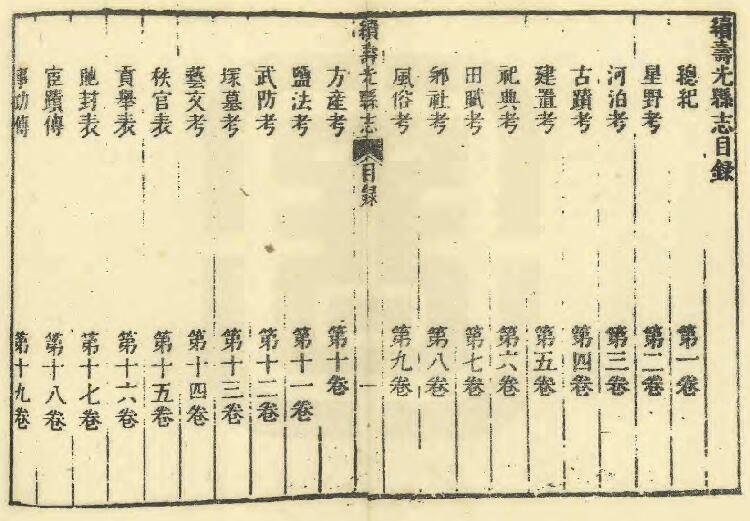 續壽光縣志目録
總紀 第一卷
星野考 第二卷
河泊考 第三卷
古蹟考 第四卷
建置考 第五卷
祀典考 第六卷
田賦考 第七卷
鄉社考 第八卷
風俗考 第九卷
續壽光縣志 目録 一
方産考 第十卷
鹽法考 第十一卷
武防考 第十二卷
塚墓考 第十三卷
藝文考 第十四卷
秩官表 第十五卷
貢舉表 第十六卷
貤封表 第十七卷
宦蹟傳 第十八卷
事功傳 第十九卷